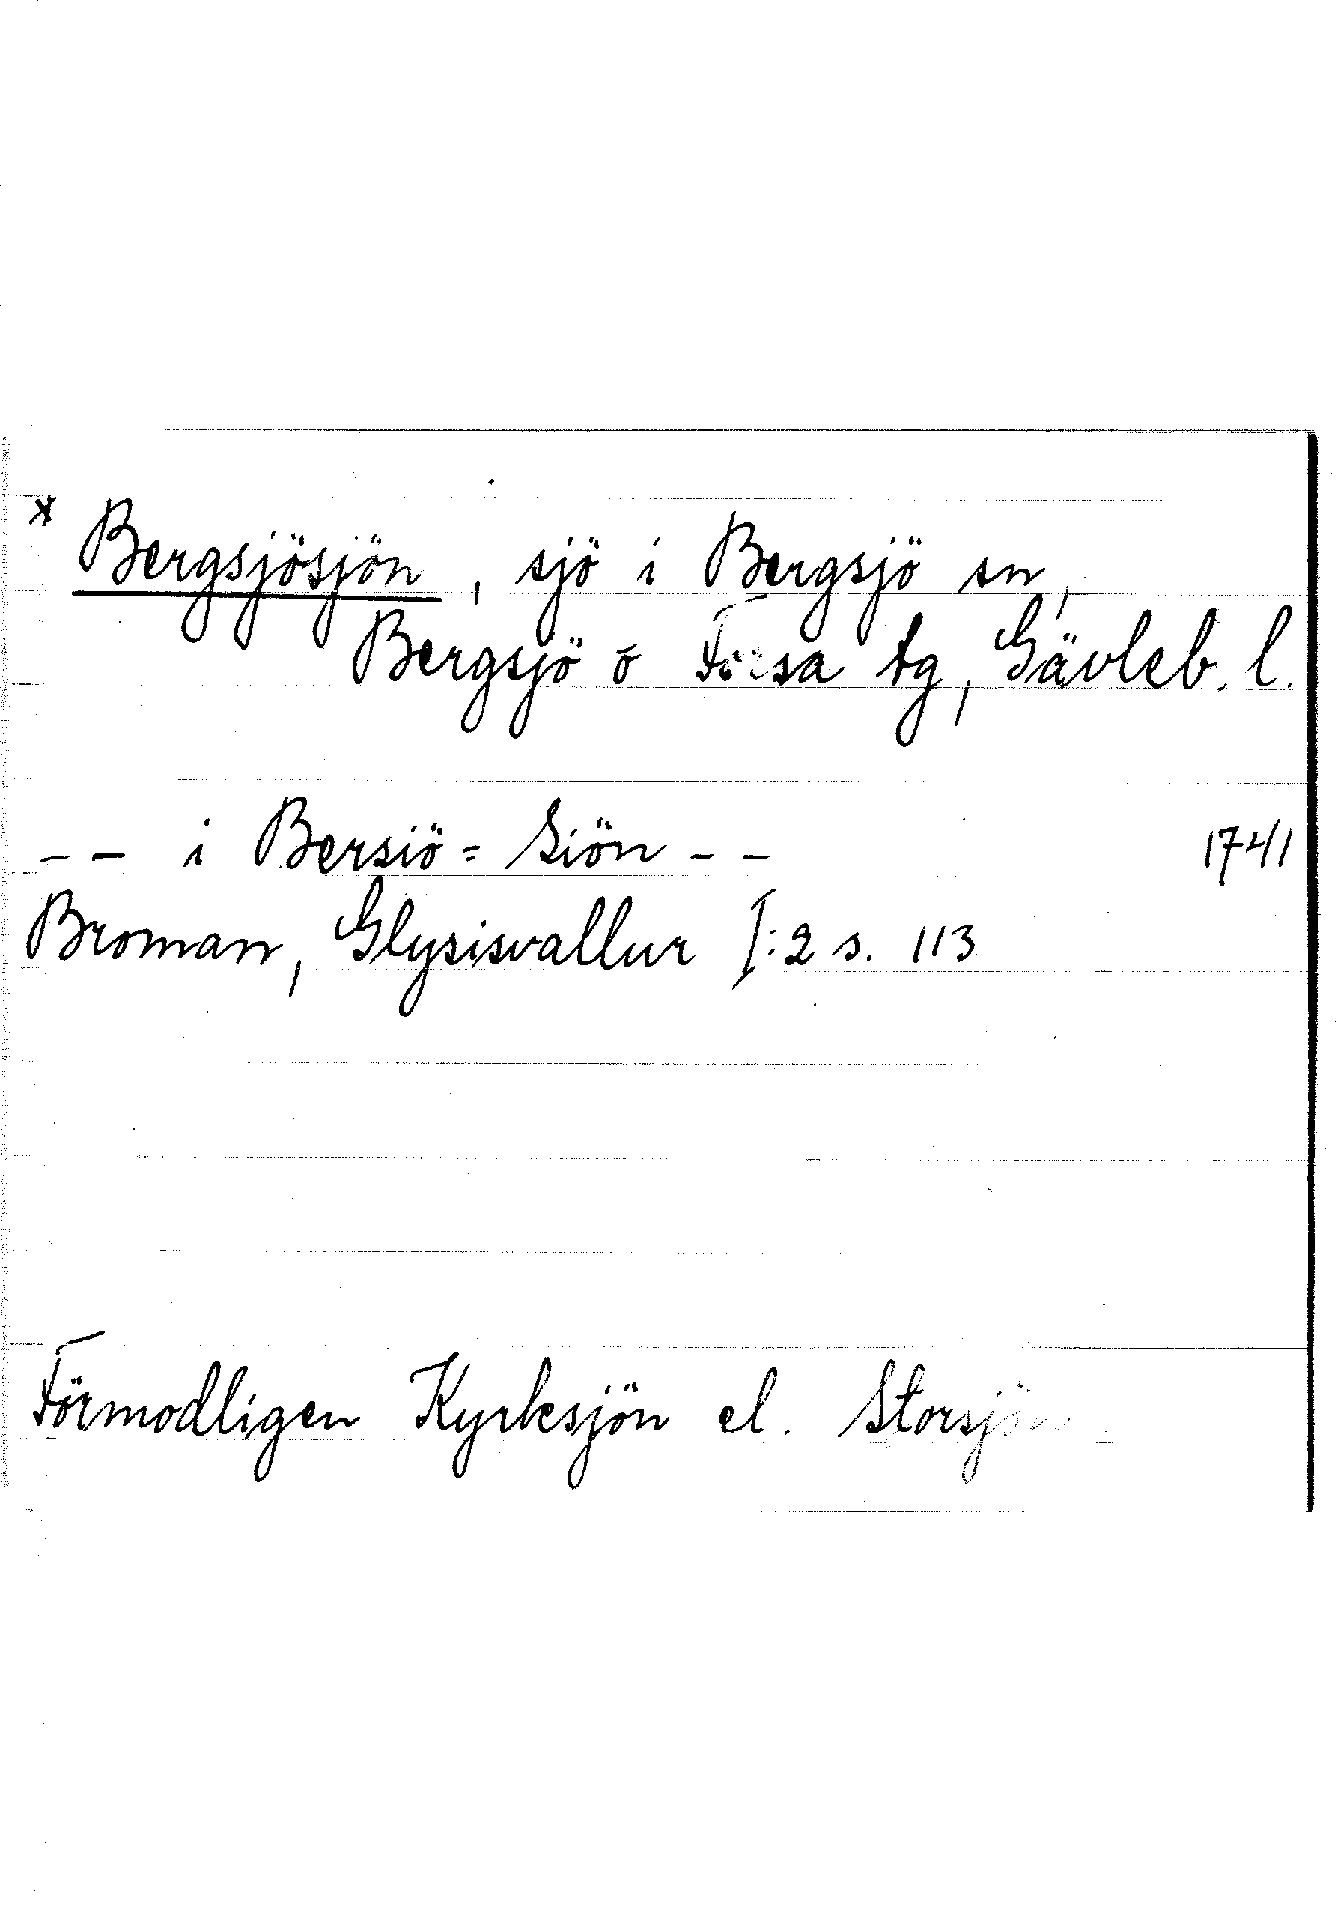 * Bergsjösjön, sjö i Bergsjö sn,
Bergsjö o Forsa tg, Gävleb. l.
-- i Bersiö= Siön -- 1741
Broman, Glysisvallur I:2 s. 113
Förmodligen Kyrksjön el. Storsjön